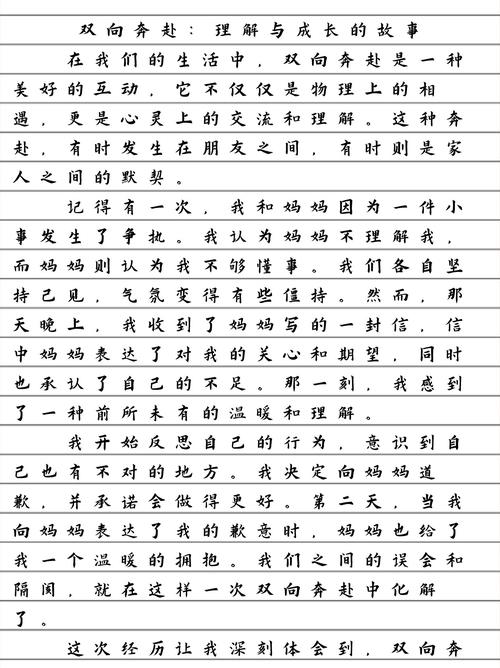 双向奔赴：理解与成长的故事
在我们的生活中，双向奔赴是一种
美好的互动，它不仅仅是物理上的相
遇，更是心灵上的交流和理解。这种奔
赴，有时发生在朋友之间，有时则是家
人之间的默契。
记得有一次，我和妈妈因为一件小
事发生了争执。我认为妈妈不理解我，
而妈妈则认为我不够懂事。我们各自坚
持己见，气氛变得有些僵持。然而，那
天晚上，我收到了妈妈写的一封信，信
中妈妈表达了对我的关心和期望，同时
也承认了自己的不足。那一刻，我感到
了一种前所未有的温暖和理解。
我开始反思自己的行为，意识到自
己也有不对的地方。我决定向妈妈道
歉，并承诺会做得更好。第二天，当我
向妈妈表达了我的歉意时，妈妈也给了
我一个温暖的拥抱。我们之间的误会和
隔阂，就在这样一次双向奔赴中化解
了。
这次经历让我深刻体会到，双向奔